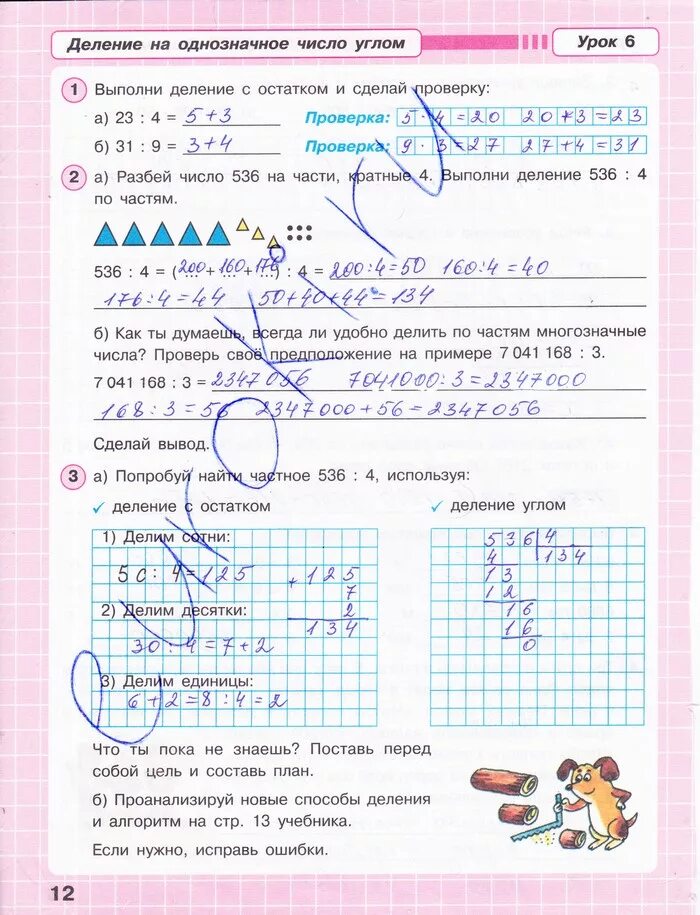 Деление на однозначное число углом
Урок 6
1 Выполни деление с остатком и сделай проверку:
а) 23 : 4 = 5+3 Проверка: 5·4=20 20+3=23
б) 31 : 9 = 3+4 Проверка: 9·3=27 27+4=31
2 а) Разбей число 536 на части, кратные 4. Выполни деление 536 : 4
по частям.
536 : 4 = (200+160+176) : 4 = 200:4=50 160:4=40
176:4=44 50+40+44=134
б) Как ты думаешь, всегда ли удобно делить по частям многозначные
числа? Проверь своё предположение на примере 7 041 168 : 3.
7 041 168 : 3 = 2347 056 7041000:3=2347000
168:3=56 2347000+56=2347056
Сделай вывод.
3 а) Попробуй найти частное 536 : 4, используя:
✓ деление с остатком
✓ деление углом
1) Делим сотни:
5с:4=125
2) Делим десятки:
30:4=7+2
3) Делим единицы:
6+2=8:4=2
+125
7
2
134
536 4
4 134
13
12
16
16
0
Что ты пока не знаешь? Поставь перед
собой цель и составь план.
б) Проанализируй новые способы деления
и алгоритм на стр. 13 учебника.
Если нужно, исправь ошибки.
12